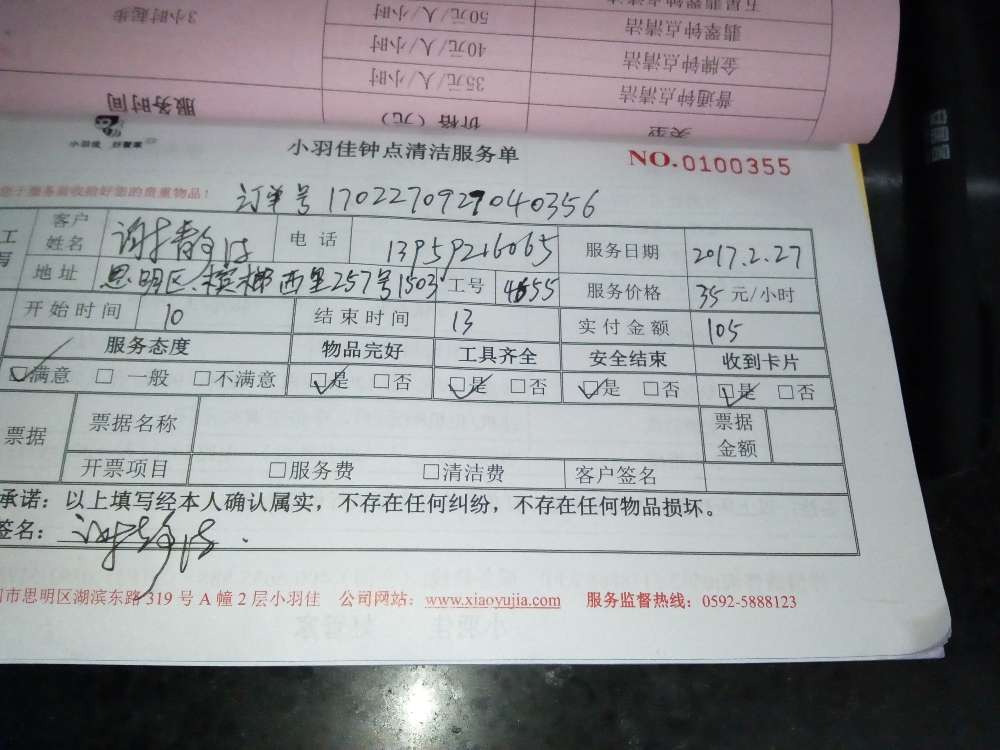 五星翡翠钟点清洁
翡翠钟点清洁 50元/人/小时
金牌钟点清洁 40元/人/小时 3小时起步
普通钟点清洁 35元/人/小时
类型 价格（元） 服务时间
小羽佳 好管家
小羽佳钟点清洁服务单 NO.0100355
您于服务前收拾好您的贵重物品！
订单号 170227092040356
客户姓名 电话 13959216065 服务日期 2017.2.27
地址 思明区槟榔西里257号1503 工号 4655 服务价格 35 元/小时
开始时间 10 结束时间 13 实付金额 105
服务态度 物品完好 工具齐全 安全结束 收到卡片
☑满意 □一般 □不满意 ☑是 □否 ☑是 □否 ☑是 □否 ☑是 □否
票据 票据名称 票据金额
开票项目 □服务费 □清洁费 客户签名
承诺：以上填写经本人确认属实，不存在任何纠纷，不存在任何物品损坏。
签名：
市思明区湖滨东路 319 号 A 幢 2 层小羽佳 公司网站：www.xiaoyujia.com 服务监督热线：0592-5888123